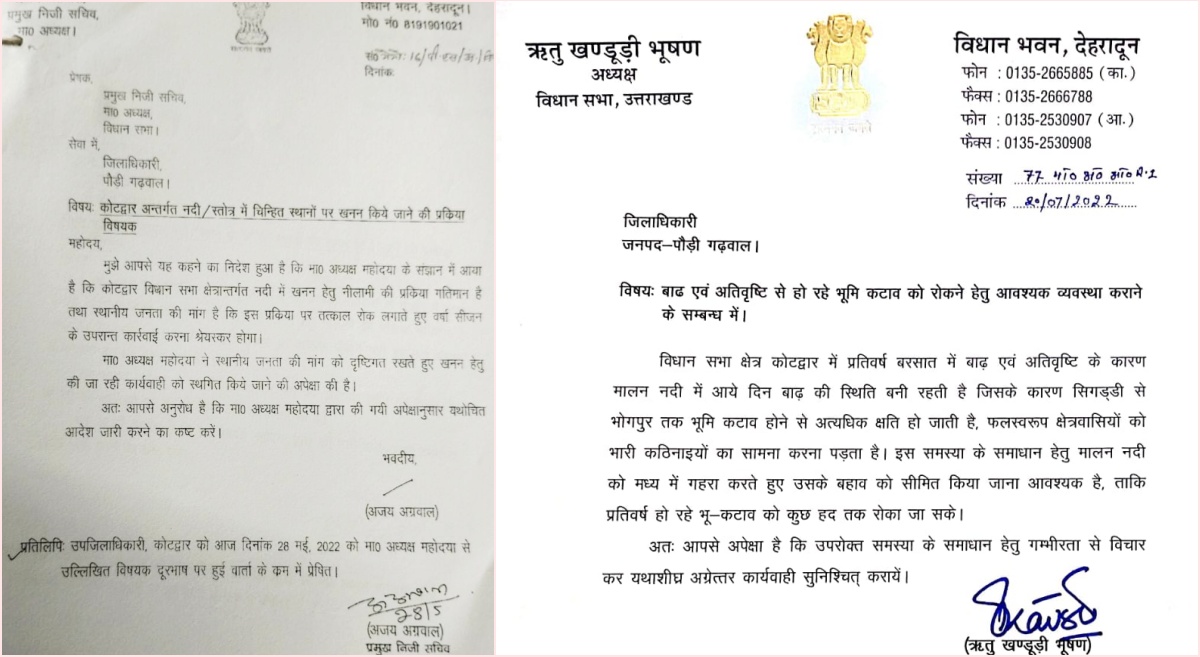 प्रमुख निजी सचिव,
मा० अध्यक्ष।
विधान भवन, देहरादून।
मो० नं० 8191901021
दिनांक:
प्रेषक,
प्रमुख निजी सचिव,
मा0 अध्यक्ष,
विधान सभा।
सेवा में,
जिलाधिकारी,
पौड़ी गढ़वाल।
विषयः कोटद्वार अन्तर्गत नदी/स्तोत्र में चिन्हित स्थानों पर खनन किये जाने की प्रकिया
विषयक
महोदय,
मुझे आपसे यह कहने का निदेश हुआ है कि मा0 अध्यक्ष महोदया के संज्ञान में आया
है कि कोटद्वार विधान सभा क्षेत्रान्तर्गत नदी में खनन हेतु नीलामी की प्रकिया गतिमान है
तथा स्थानीय जनता की मांग है कि इस प्रकिया पर तत्काल रोक लगाते हुए वर्षा सीजन
के उपरान्त कार्रवाई करना श्रेयस्कर होगा।
मा0 अध्यक्ष महोदया ने स्थानीय जनता की मांग को दृष्टिगत रखते हुए खनन हेतु
की जा रही कार्यवाही को स्थगित किये जाने की अपेक्षा की है।
अतः आपसे अनुरोध है कि मा0 अध्यक्ष महोदया द्वारा की गयी अपेक्षानुसार यथोचित
आदेश जारी करने का कष्ट करें।
भवदीय,
(अजय अग्रवाल)
प्रतिलिपिः उपजिलाधिकारी, कोटद्वार को आज दिनांक 28 मई, 2022 को मा0 अध्यक्ष महोदया से
उल्लिखित विषयक दूरभाष पर हुई वार्ता के कम में प्रेषित।
28/5
(अजय अग्रवाल)
प्रमुख निजी सचिव
ऋतु खण्डूड़ी भूषण
अध्यक्ष
विधान सभा, उत्तराखण्ड
विधान भवन, देहरादून
फोन : 0135-2665885 (का.)
फैक्स : 0135-2666788
फोन : 0135-2530907 (आ.)
फैक्स : 0135-2530908
संख्या 77
दिनांक 20/07/2022
जिलाधिकारी
जनपद–पौड़ी गढ़वाल।
विषयः बाढ एवं अतिवृष्टि से हो रहे भूमि कटाव को रोकने हेतु आवश्यक व्यवस्था कराने
के सम्बन्ध में।
विधान सभा क्षेत्र कोटद्वार में प्रतिवर्ष बरसात में बाढ़ एवं अतिवृष्टि के कारण
मालन नदी में आये दिन बाढ़ की स्थिति बनी रहती है जिसके कारण सिगड्डी से
भोगपुर तक भूमि कटाव होने से अत्यधिक क्षति हो जाती है, फलस्वरूप क्षेत्रवासियों को
भारी कठिनाइयों का सामना करना पड़ता है। इस समस्या के समाधान हेतु मालन नदी
को मध्य में गहरा करते हुए उसके बहाव को सीमित किया जाना आवश्यक है, ताकि
प्रतिवर्ष हो रहे भू–कटाव को कुछ हद तक रोका जा सके।
अतः आपसे अपेक्षा है कि उपरोक्त समस्या के समाधान हेतु गम्भीरता से विचार
कर यथाशीघ्र अग्रेत्तर कार्यवाही सुनिश्चित् करायें।
(ऋतु खण्डूड़ी भूषण)